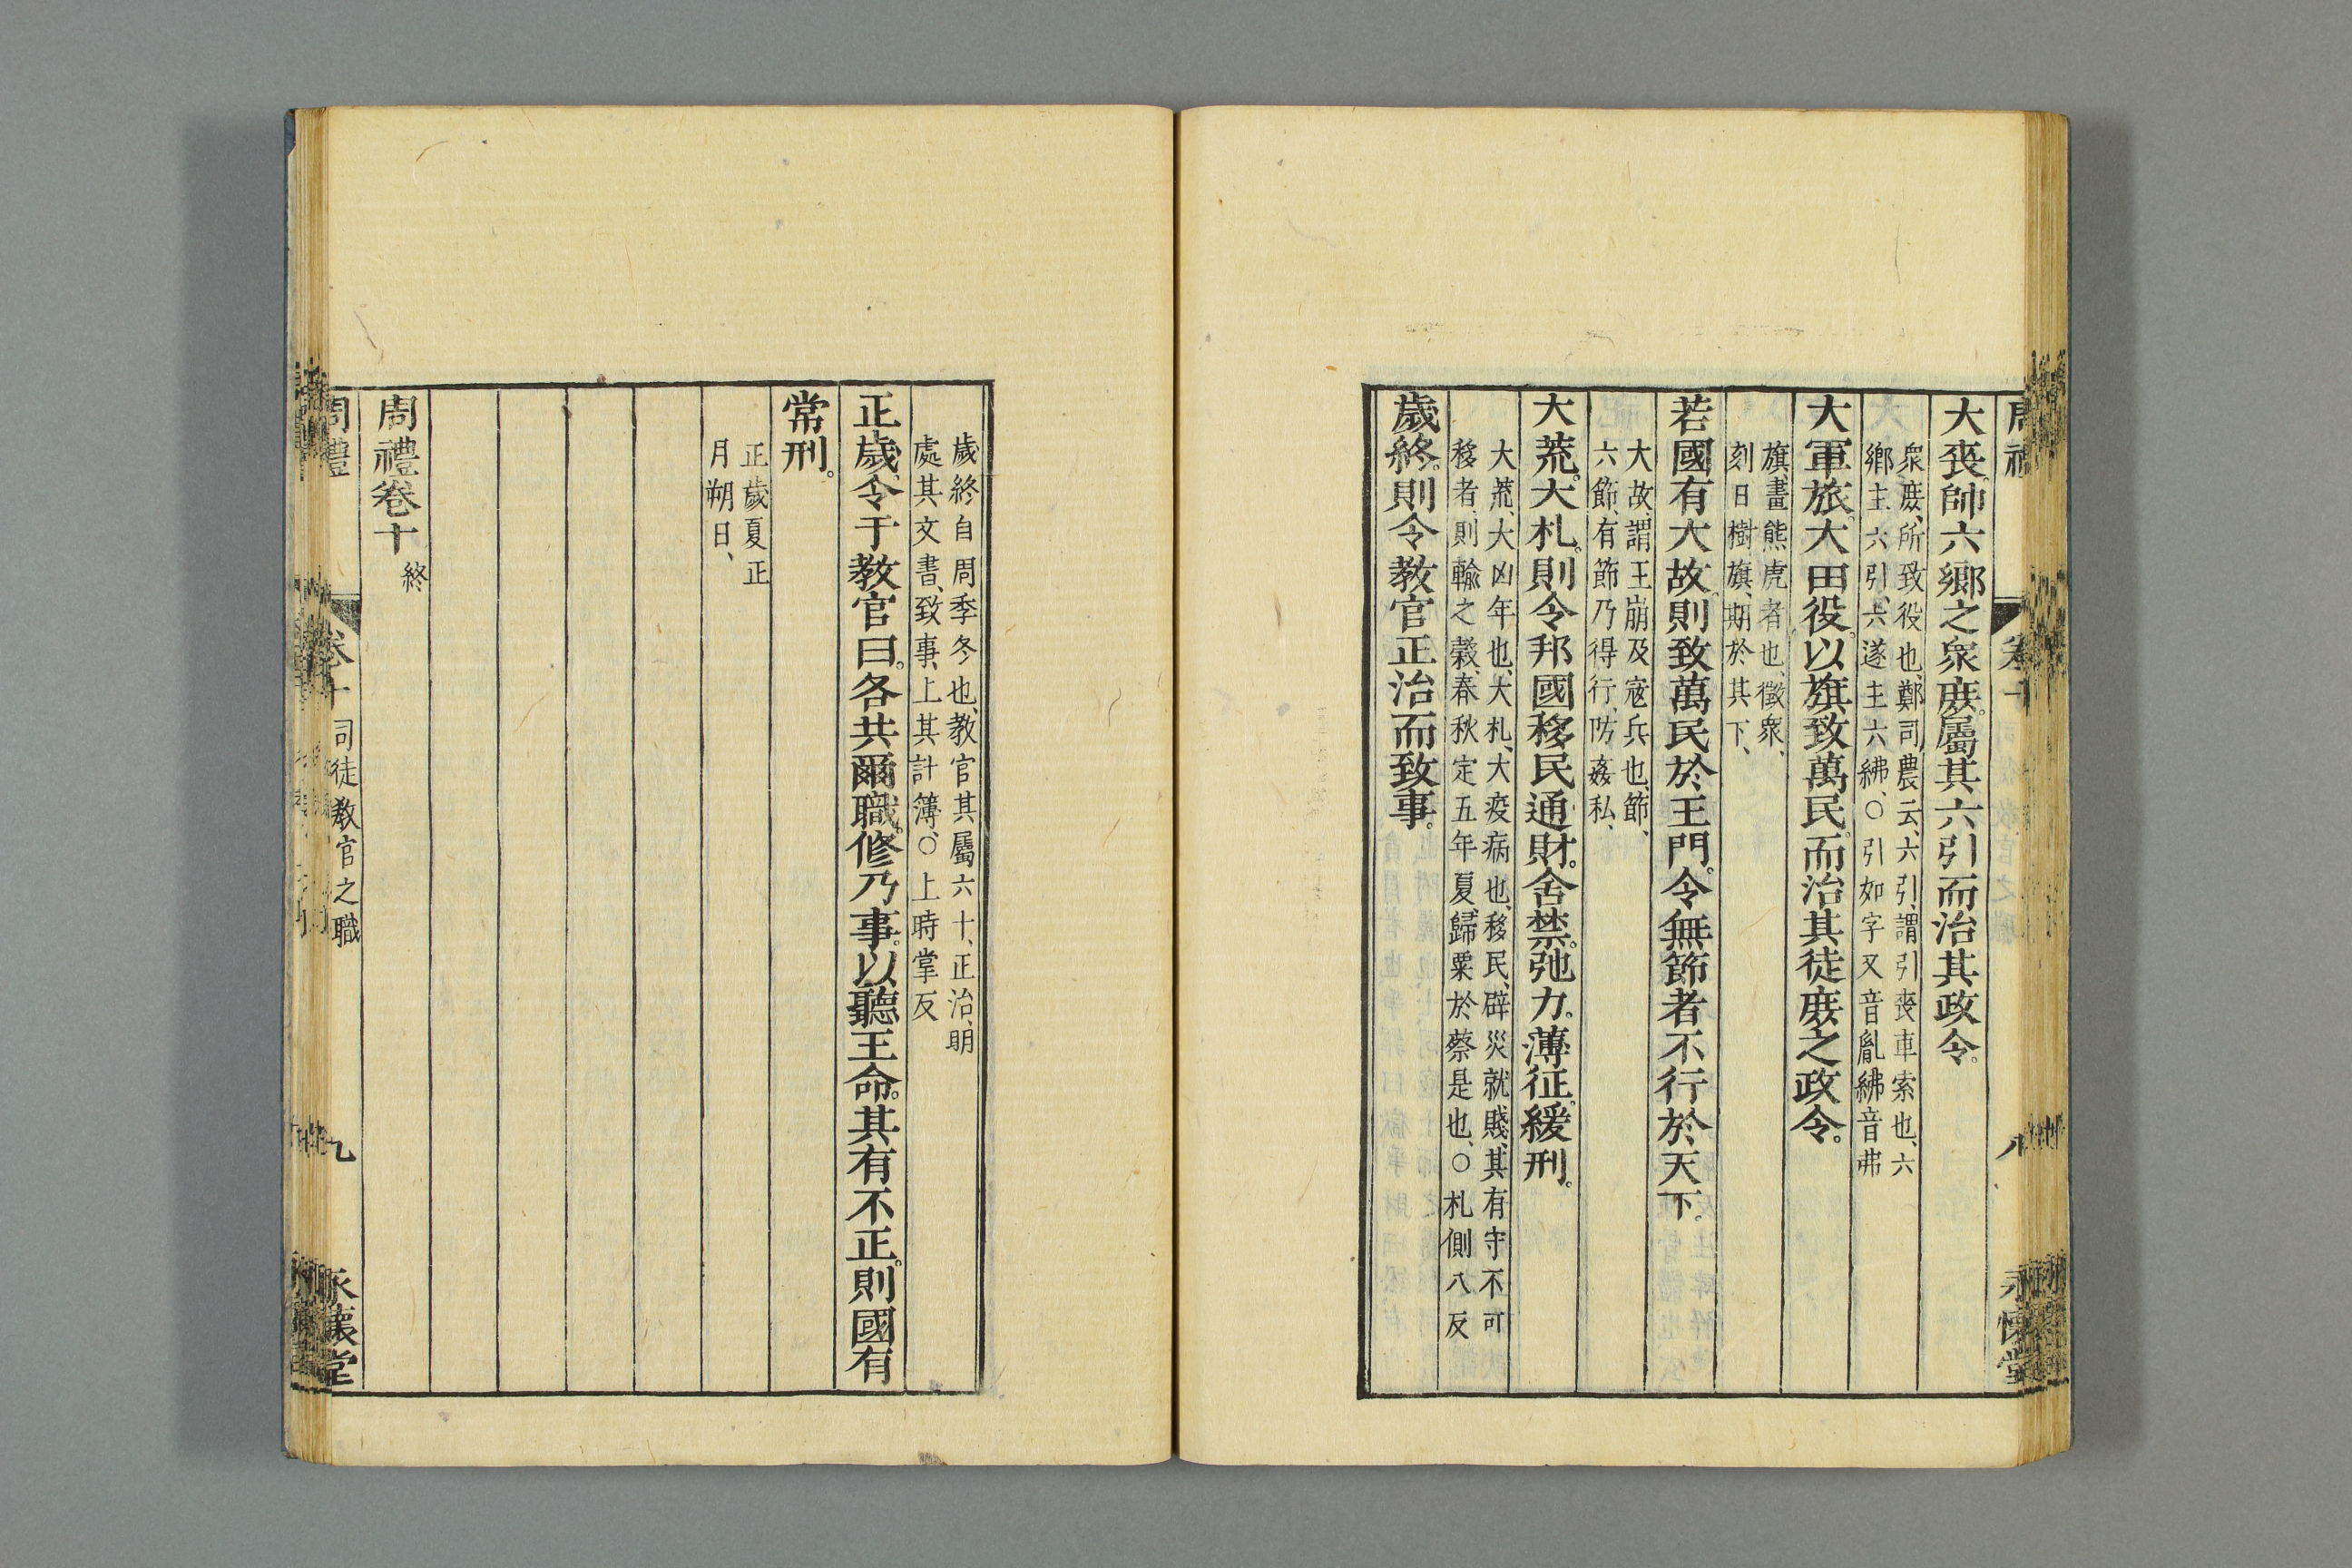 大喪。帥六鄉之衆庶。屬其六引而治其政令。
衆庶、所致役也、鄭司農云、六引、謂引喪車索也、六
鄉主六引、六遂主六紼、○引如字又音胤紼音弗
大軍旅。大田役。以旗致萬民。而治其徒庶之政令。
旗、畫熊虎者也、徵衆、
刻日樹旗、期於其下、
若國有大故。則致萬民於王門。令無節者不行於天下。
大故、謂王崩及寇兵也、節、
六節、有節乃得行、防姦私、
大荒。大札。則令邦國移民通財。舍禁。弛力。薄征。緩刑。
大荒、大凶年也、大札、大疫病也、移民、辟災就賤、其有守不可
移者、則輸之穀、春秋定五年夏、歸粟於蔡是也、○札側八反
歲終。則令教官正治而致事。
歲終自周季冬也、教官其屬六十、正治、明
處其文書、致事、上其計簿、○上時掌反
正歲。令于教官曰。各共爾職。修乃事。以聽王命。其有不正。則國有
常刑。
正歲夏正
月朔日、
周禮卷十 終
周禮 卷十 司徒教官之職 九 永懷堂